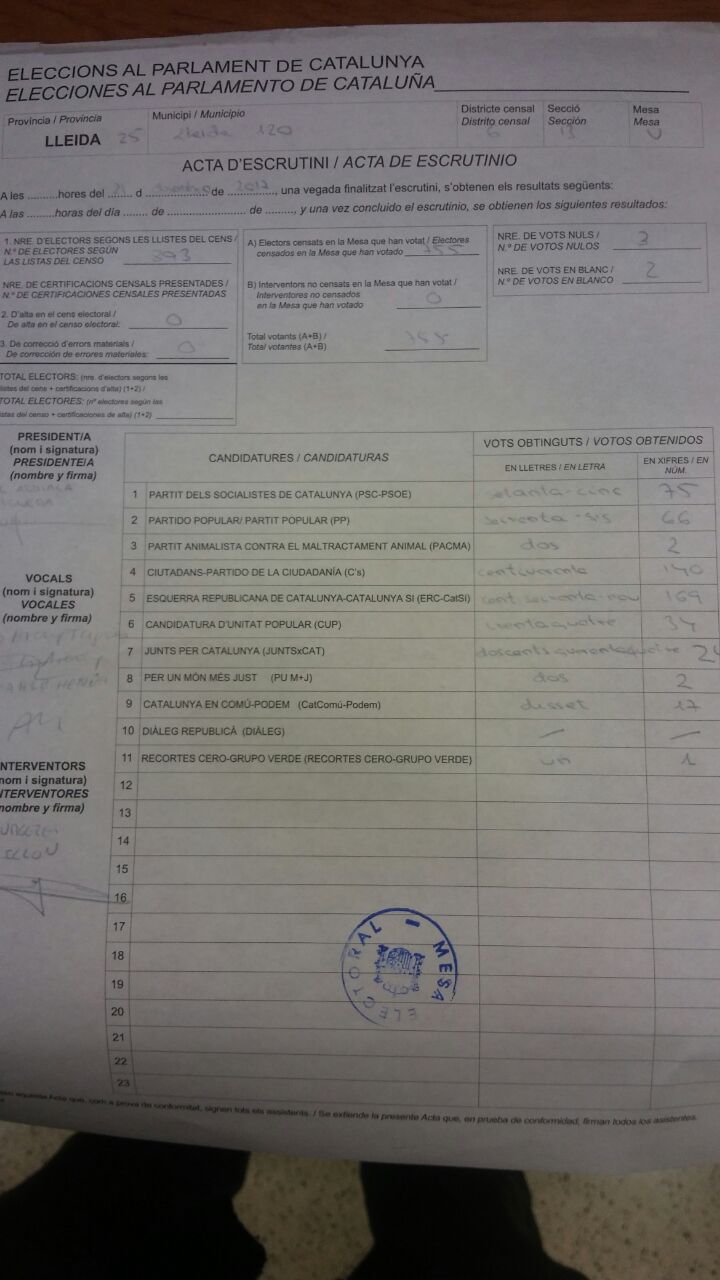 ELECCIONS AL PARLAMENT DE CATALUNYA
ELECCIONES AL PARLAMENTO DE CATALUÑA
Provincia / Provincia
LLEIDA 25
Municipi / Municipio
Lleida 120
Districte censal
Distrito censal
6
Secció
Sección
13
Mesa
Mesa
U
ACTA D'ESCRUTINI / ACTA DE ESCRUTINIO
A les ..........hores del 21 d de 2017, una vegada finalitzat l'escrutini, s'obtenen els resultats següents:
A las ..........horas del día ....... de ........................... de ........, y una vez concluido el escrutinio, se obtienen los siguientes resultados:
1. NRE. D'ELECTORS SEGONS LES LLISTES DEL CENS /
N.º DE ELECTORES SEGÚN
LAS LISTAS DEL CENSO
NRE. DE CERTIFICACIONS CENSALS PRESENTADES /
N.º DE CERTIFICACIONES CENSALES PRESENTADAS
2. D'alta en el cens electoral /
De alta en el censo electoral: 0
3. De correcció d'errors materials /
De corrección de errores materiales: 0
TOTAL ELECTORS: (nre. d'electors segons les
listes del cens + certificacions d'alta) (1+2) /
TOTAL ELECTORES: (nº electores según las
istas del censo + certificaciones de alta) (1+2)
A) Electors censats en la Mesa que han votat / Electores
censados en la Mesa que han votado 755
B) Interventors no censats en la Mesa que han votat /
Interventores no censados
en la Mesa que han votado 0
Total votants (A+B) /
Total votantes (A+B) 755
NRE. DE VOTS NULS /
N.º DE VOTOS NULOS 3
NRE. DE VOTS EN BLANC /
N.º DE VOTOS EN BLANCO 2
PRESIDENT/A
(nom i signatura)
PRESIDENTE/A
(nombre y firma)
VOCALS
(nom i signatura)
VOCALES
(nombre y firma)
NTERVENTORS
nom i signatura)
ITERVENTORES
nombre y firma)
CANDIDATURES / CANDIDATURAS
VOTS OBTINGUTS / VOTOS OBTENIDOS
EN LLETRES / EN LETRA
EN XIFRES / EN NÚM.
1 PARTIT DELS SOCIALISTES DE CATALUNYA (PSC-PSOE) setanta-cinc 75
2 PARTIDO POPULAR/ PARTIT POPULAR (PP) seixanta-sis 66
3 PARTIT ANIMALISTA CONTRA EL MALTRACTAMENT ANIMAL (PACMA) dos 2
4 CIUTADANS-PARTIDO DE LA CIUDADANÍA (C's) 140
5 ESQUERRA REPUBLICANA DE CATALUNYA-CATALUNYA SI (ERC-CatSí) cent seixanta-nou 169
6 CANDIDATURA D'UNITAT POPULAR (CUP) 34
7 JUNTS PER CATALUNYA (JUNTSxCAT) 24
8 PER UN MÓN MÉS JUST (PU M+J) dos 2
9 CATALUNYA EN COMÚ-PODEM (CatComú-Podem) disset 17
10 DIÀLEG REPUBLICÀ (DIÀLEG) — —
11 RECORTES CERO-GRUPO VERDE (RECORTES CERO-GRUPO VERDE) un 1
12
13
14
15
16
17
18
19
20
21
22
23
MESA ELECTORAL
aquesta Acta que, com a prova de conformitat, signen tots els assistents. / Se extiende la presente Acta que, en prueba de conformidad, firman todos los asistentes.